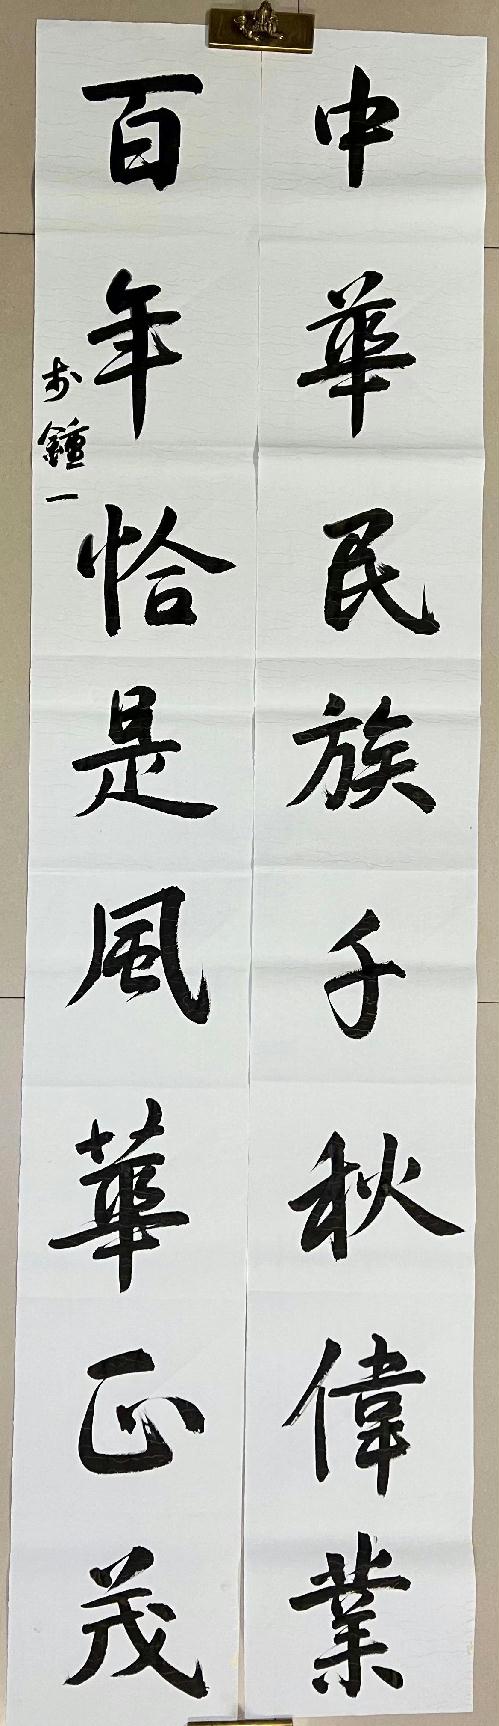 中華民族千秋偉業
百年恰是風華正茂
鍾一